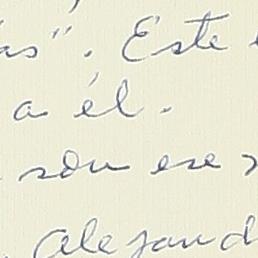 as". Este
a él.
son ese
Alejand